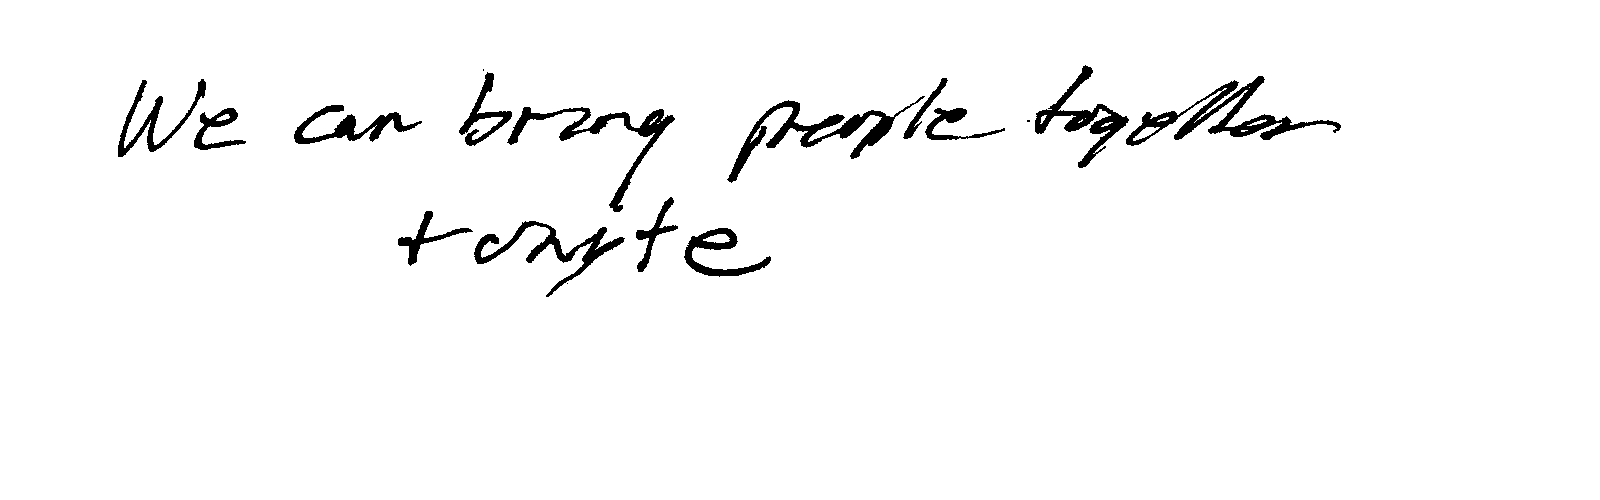 We can bring people together
tonyte